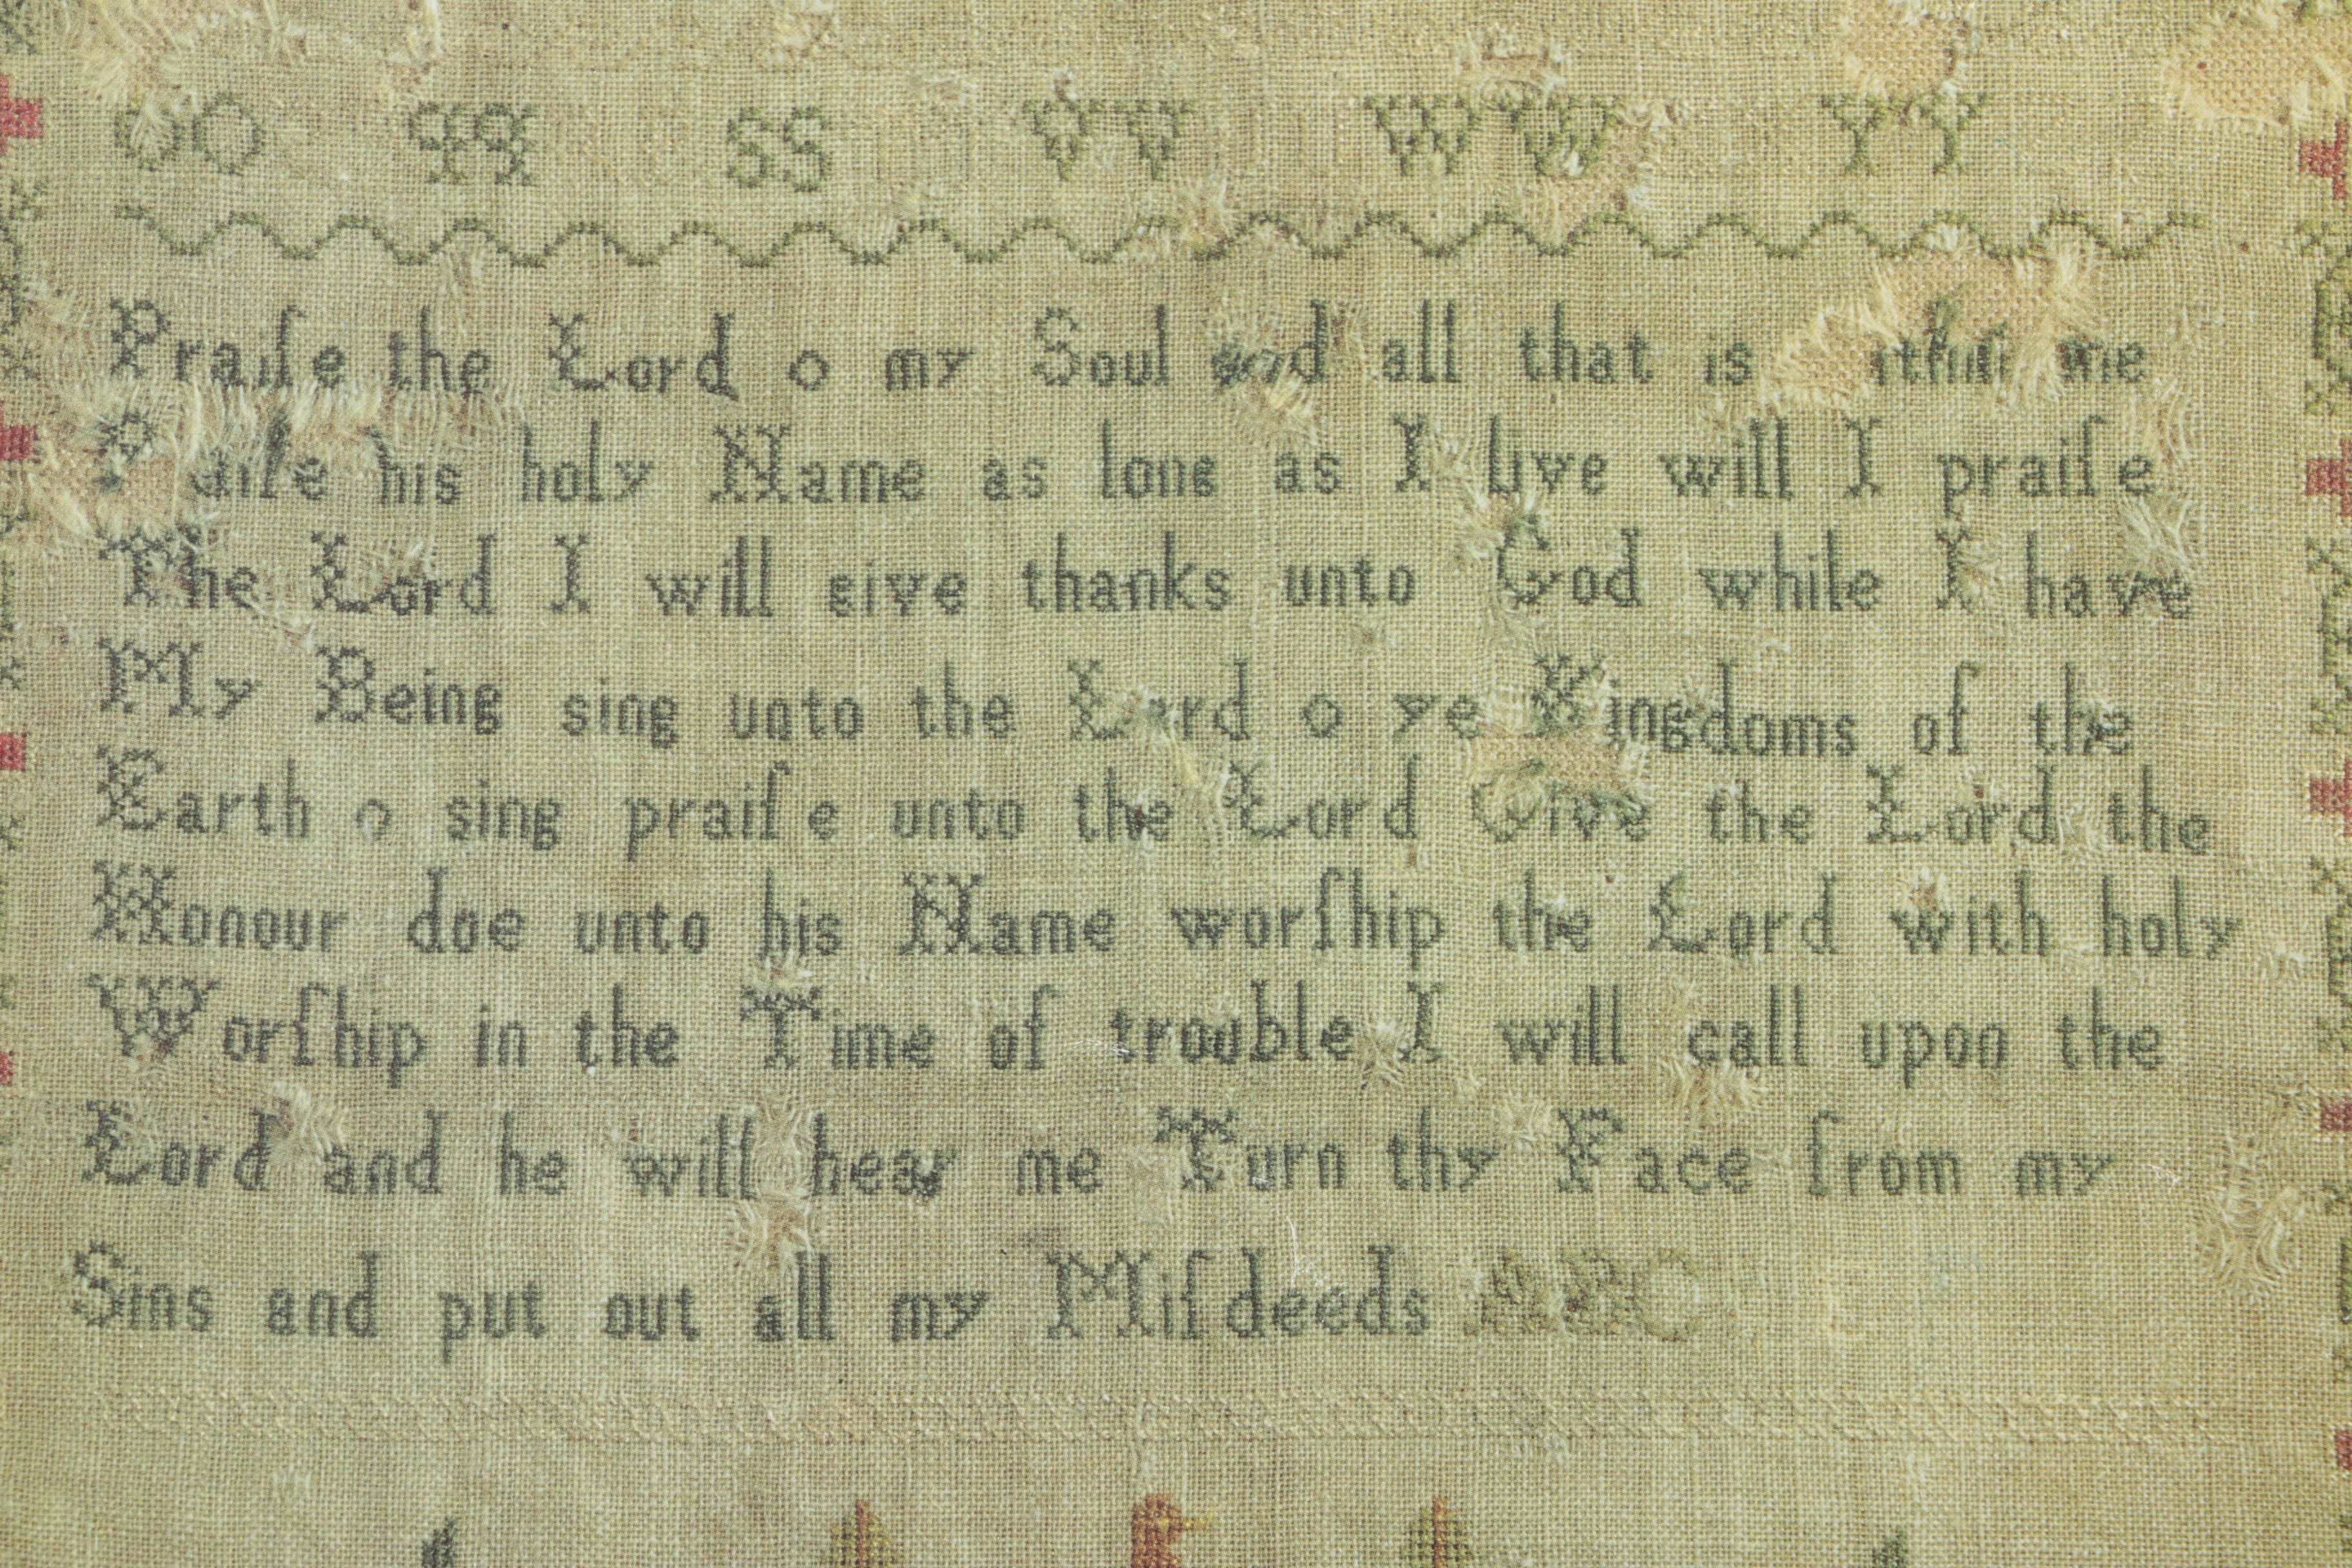 OO PP SS VV WW YY
Praiſe the Lord o my Soul and all that is within me
Praiſe his holy Name as long as I live will I praiſe
The Lord I will give thanks unto God while I have
My Being sing unto the Lord o ye Kingdoms of the
Earth o sing praiſe unto the Lord Give the Lord the
Honour due unto his Name worſhip the Lord with holy
Worſhip in the Time of trouble I will call upon the
Lord and he will hear me Turn thy Face from my
Sins and put out all my Miſdeeds ABC